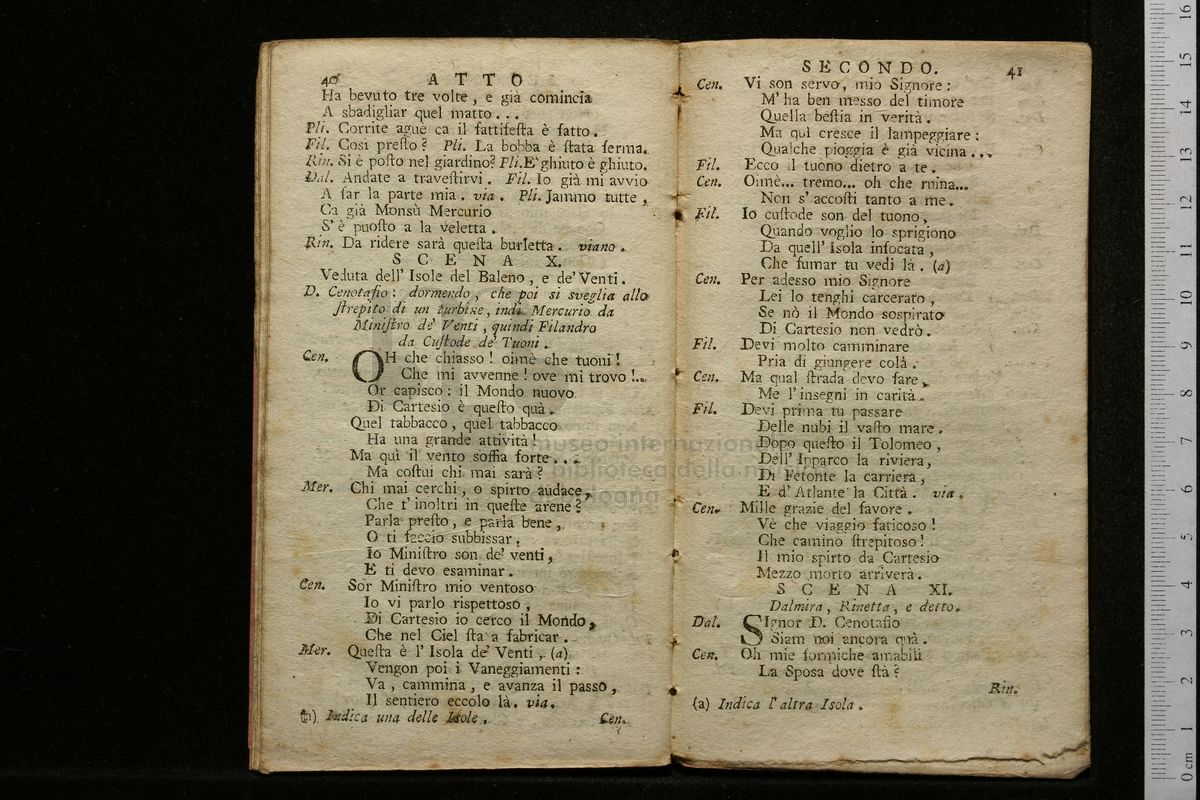 40 ATTO
Ha bevuto tre volte, e già comincia
A sbadigliar quel matto...
Pli. Corrite ague ca il fattifesta è fatto.
Fil. Così presto? Pli. La bobba è stata ferma.
Rin. Si è posto nel giardino? Pli. E' ghiuto è ghiuto.
Dal. Andate a travestirvi. Fil. Io già mi avvio
A far la parte mia. via. Pli. Jammo tutte,
Ca già Monsù Mercurio
S'è puosto a la veletta.
Rin. Da ridere sarà questa burletta. viano.
SCENA X.
Veduta dell' Isole del Baleno, e de' Venti.
D. Cenotafio: dormendo, che poi si sveglia allo
strepito di un turbine, indi Mercurio da
Ministro de' Venti, quindi Filandro
da Custode de' Tuoni.
Cen. OH che chiasso! oimè che tuoni!
Che mi avvenne! ove mi trovo!...
Or capisco: il Mondo nuovo
Di Cartesio è questo quà.
Quel tabbacco, quel tabbacco
Ha una grande attività!
Ma quì il vento soffia forte...
Ma costui chi mai sarà?
Mer. Chi mai cerchi, o spirto audace,
Che t'inoltri in queste arene?
Parla presto, e parla bene,
O ti faccio subbissar.
Io Ministro son de' venti,
E ti devo esaminar.
Cen. Sor Ministro mio ventoso
Io vi parlo rispettoso,
Di Cartesio io cerco il Mondo,
Che nel Ciel sta a fabricar.
Mer. Questa è l' Isola de' Venti, (a)
Vengon poi i Vaneggiamenti:
Va, cammina, e avanza il passo,
Il sentiero eccolo là. via.
(a) Indica una delle Isole. Cen.
SECONDO. 41
Cen. Vi son servo, mio Signore:
M' ha ben messo del timore
Quella bestia in verità.
Ma quì cresce il lampeggiare:
Qualche pioggia è già vicina...
Fil. Ecco il tuono dietro a te.
Cen. Oimè... tremo... oh che ruina...
Non s'accosti tanto a me.
Fil. Io custode son del tuono,
Quando voglio lo sprigiono
Da quell' Isola infocata,
Che fumar tu vedi là. (a)
Cen. Per adesso mio Signore
Lei lo tenghi carcerato,
Se nò il Mondo sospirato
Di Cartesio non vedrò.
Fil. Devi molto camminare
Pria di giungere colà.
Cen. Ma qual strada devo fare,
Me l'insegni in carità.
Fil. Devi prima tu passare
Delle nubi il vasto mare.
Dopo questo il Tolomeo,
Dell' Ipparco la riviera,
Di Fetonte la carriera,
E d' Atlante la Città. via.
Cen. Mille grazie del favore.
Ve che viaggio faticoso!
Che camino strepitoso!
Il mio spirto da Cartesio
Mezzo morto arriverà.
SCENA XI.
Dalmira, Rinetta, e detto.
Dal. SIgnor D. Cenotafio
Siam noi ancora quà.
Cen. Oh mie formiche amabili
La Sposa dove stà?
Rin.
(a) Indica l'altra Isola.
museo internazionale
biblioteca della musica
di bologna
0 cm 1 2 3 4 5 6 7 8 9 10 11 12 13 14 15 16